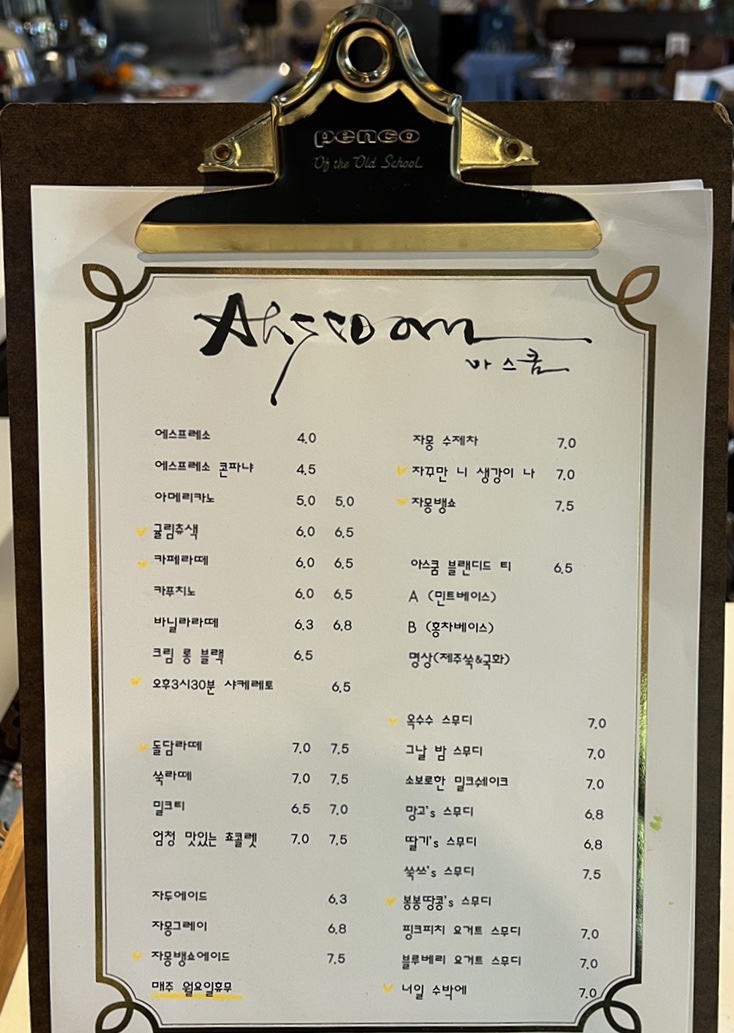 penco
Of the Old School
Ahscoom
아스쿰
에스프레소 4.0
에스프레소 콘파냐 4.5
아메리카노 5.0 5.0
귤림추색 6.0 6.5
카페라떼 6.0 6.5
카푸치노 6.0 6.5
바닐라라떼 6.3 6.8
크림 롱 블랙 6.5
오후3시30분 샤케레토 6.5
돌담라떼 7.0 7.5
쑥라떼 7.0 7.5
밀크티 6.5 7.0
엄청 맛있는 쵸콜렛 7.0 7.5
자두에이드 6.3
자몽그레이 6.8
자몽뱅쇼에이드 7.5
매주 월요일휴무
자몽 수제차 7.0
자꾸만 니 생강이 나 7.0
자몽뱅쇼 7.5
아스쿰 블랜디드 티 6.5
A (민트베이스)
B (홍차베이스)
명상(제주쑥&국화)
옥수수 스무디 7.0
그날 밤 스무디 7.0
소보로한 밀크쉐이크 7.0
망고's 스무디 6.8
딸기's 스무디 6.8
쑥쓰's 스무디 7.5
봉봉땅콩's 스무디
핑크피치 요거트 스무디 7.0
블루베리 요거트 스무디 7.0
너일 수박에 7.0